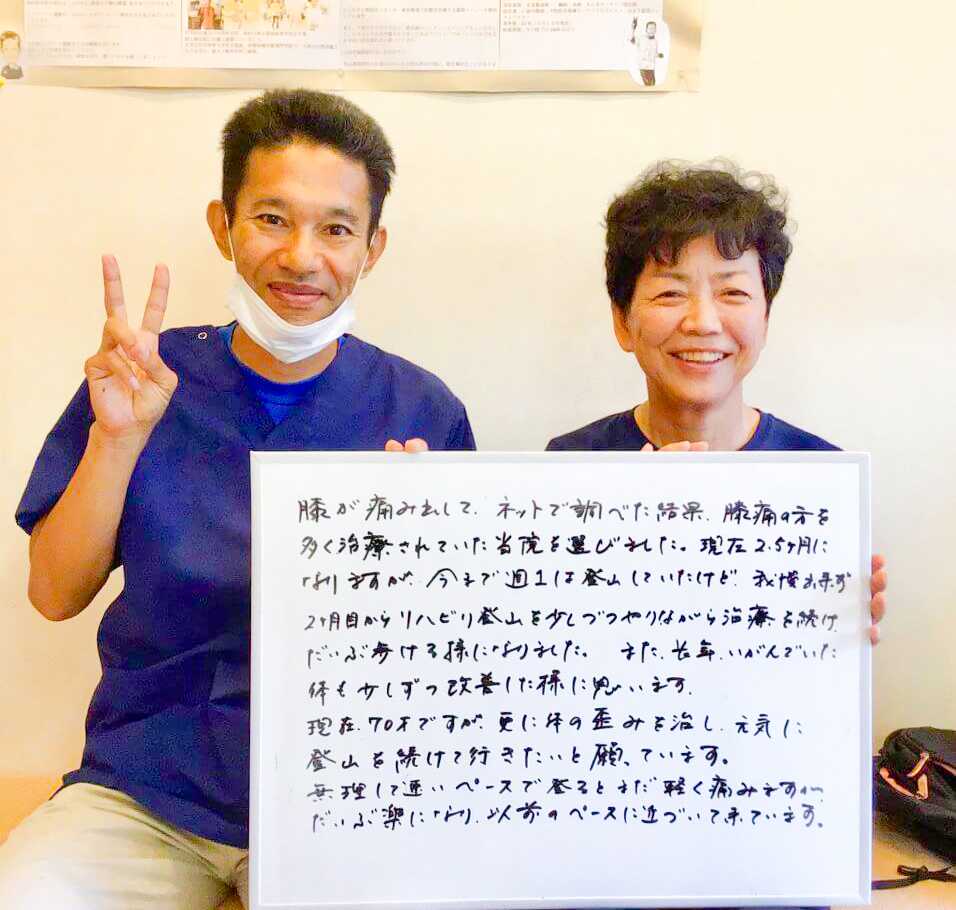 膝が痛み出して、ネットで調べた結果、膝痛の方を
多く治療されていた当院を選びました。現在2.5ヶ月に
なりますが、今まで週1は登山していたけど、我慢出来ず
2ヶ月目からリハビリ登山を少しづつやりながら治療を続け、
だいぶ歩ける様になりました。 また、長年、いがんでいた
体も少しずつ改善した様に思います。
現在、70才ですが、更に体の歪みを治し、元気に
登山を続けて行きたいと願っています。
無理して速いペースで登るとまだ軽く痛みますが、
だいぶ楽になり、以前のペースに近づいて来ています。